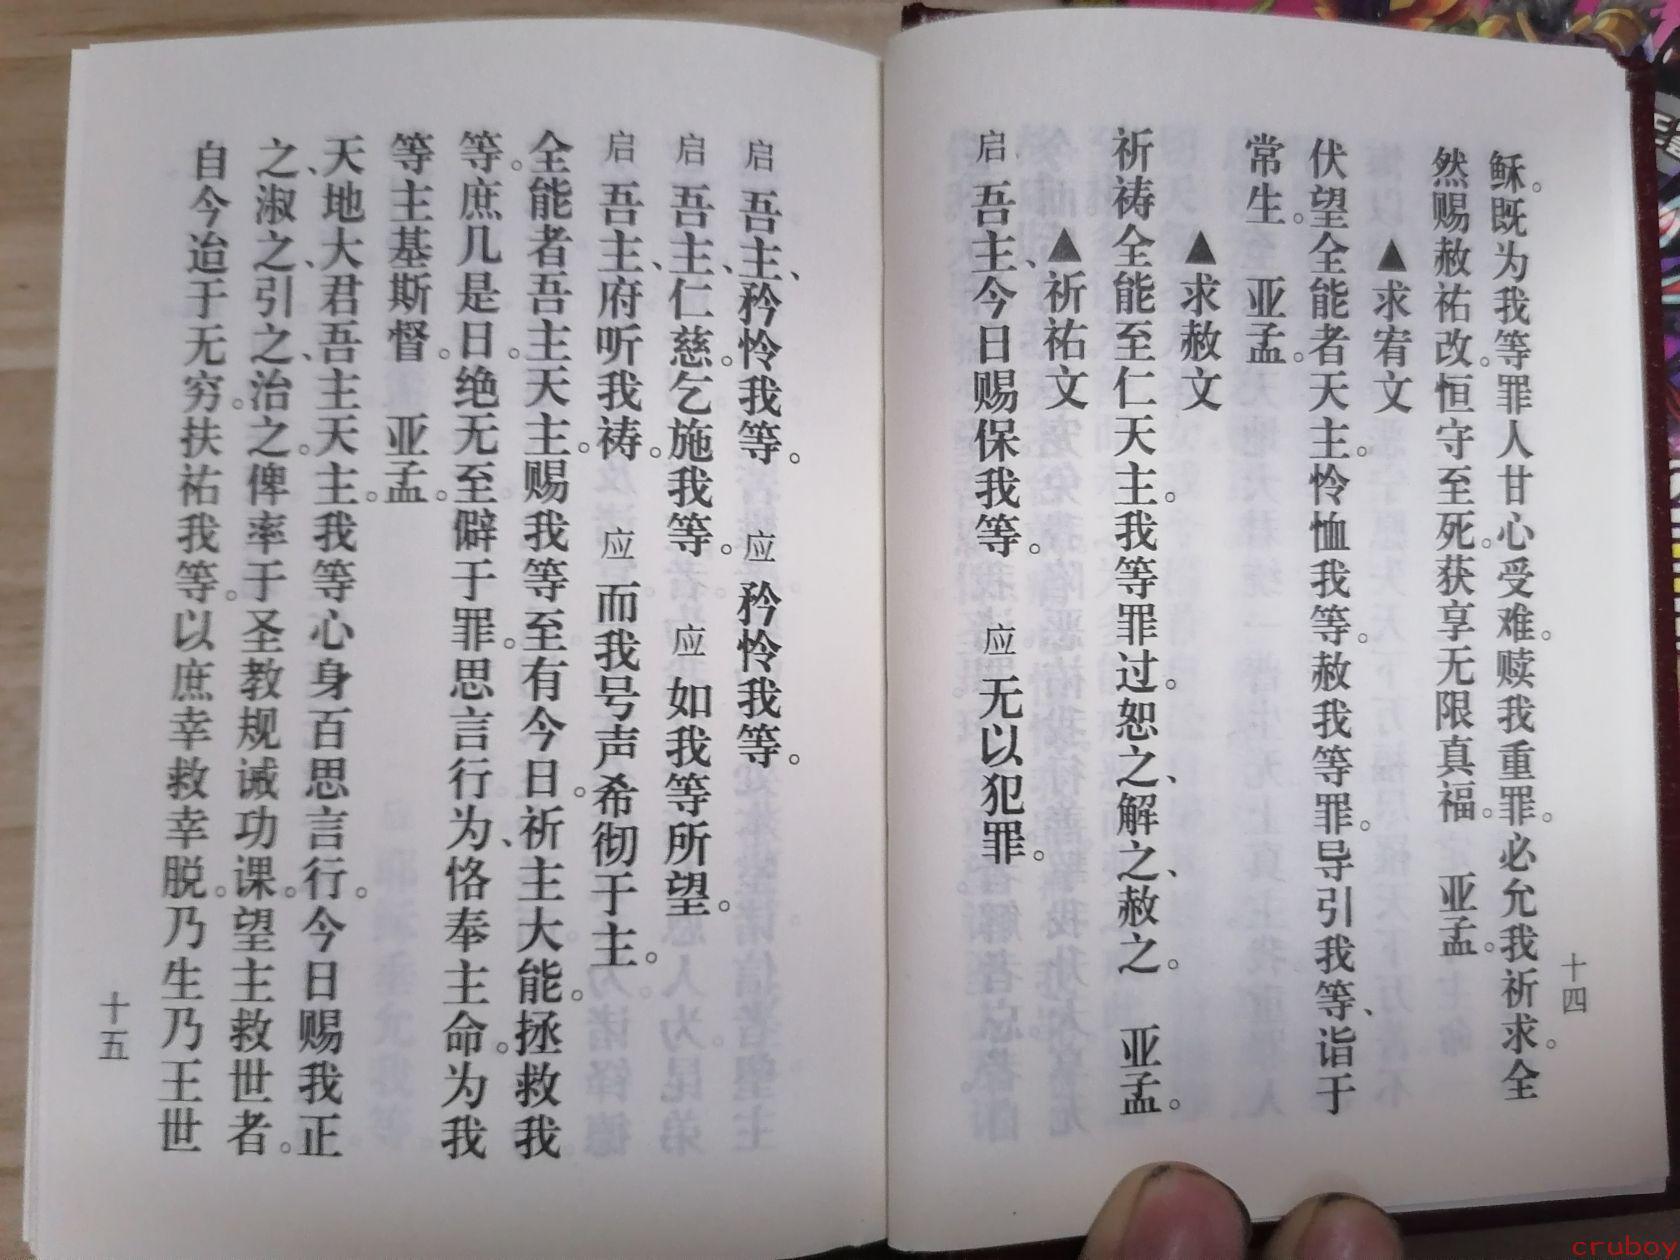 稣。既为我等罪人甘心受难。赎我重罪。必允我祈求。全
然赐赦祐改。恒守至死。获享无限真福。 亚孟。
▲求宥文
伏望全能者天主。怜恤我等。赦我等罪。导引我等、诣于
常生。 亚孟。
▲求赦文
祈祷全能至仁天主。我等罪过。恕之、解之、赦之。 亚孟。
▲祈祐文
启 吾主、今日赐保我等。 应 无以犯罪。
十四
启 吾主、矜怜我等。 应 矜怜我等。
启 吾主、仁慈。乞施我等。 应 如我等所望。
启 吾主、府听我祷。 应 而我号声希彻于主。
全能者吾主天主。赐我等至有今日。祈主大能。拯救我
等。庶几是日。绝无至僻于罪。思言行为、恪奉主命。为我
等主基斯督。 亚孟。
天地大君吾主天主。我等心身百思言行。今日赐我正
之、淑之、引之、治之。俾率于圣教规诫功课。望主救世者。
自今迨于无穷。扶祐我等。以庶幸救幸脱。乃生乃王世
十五
cruboy